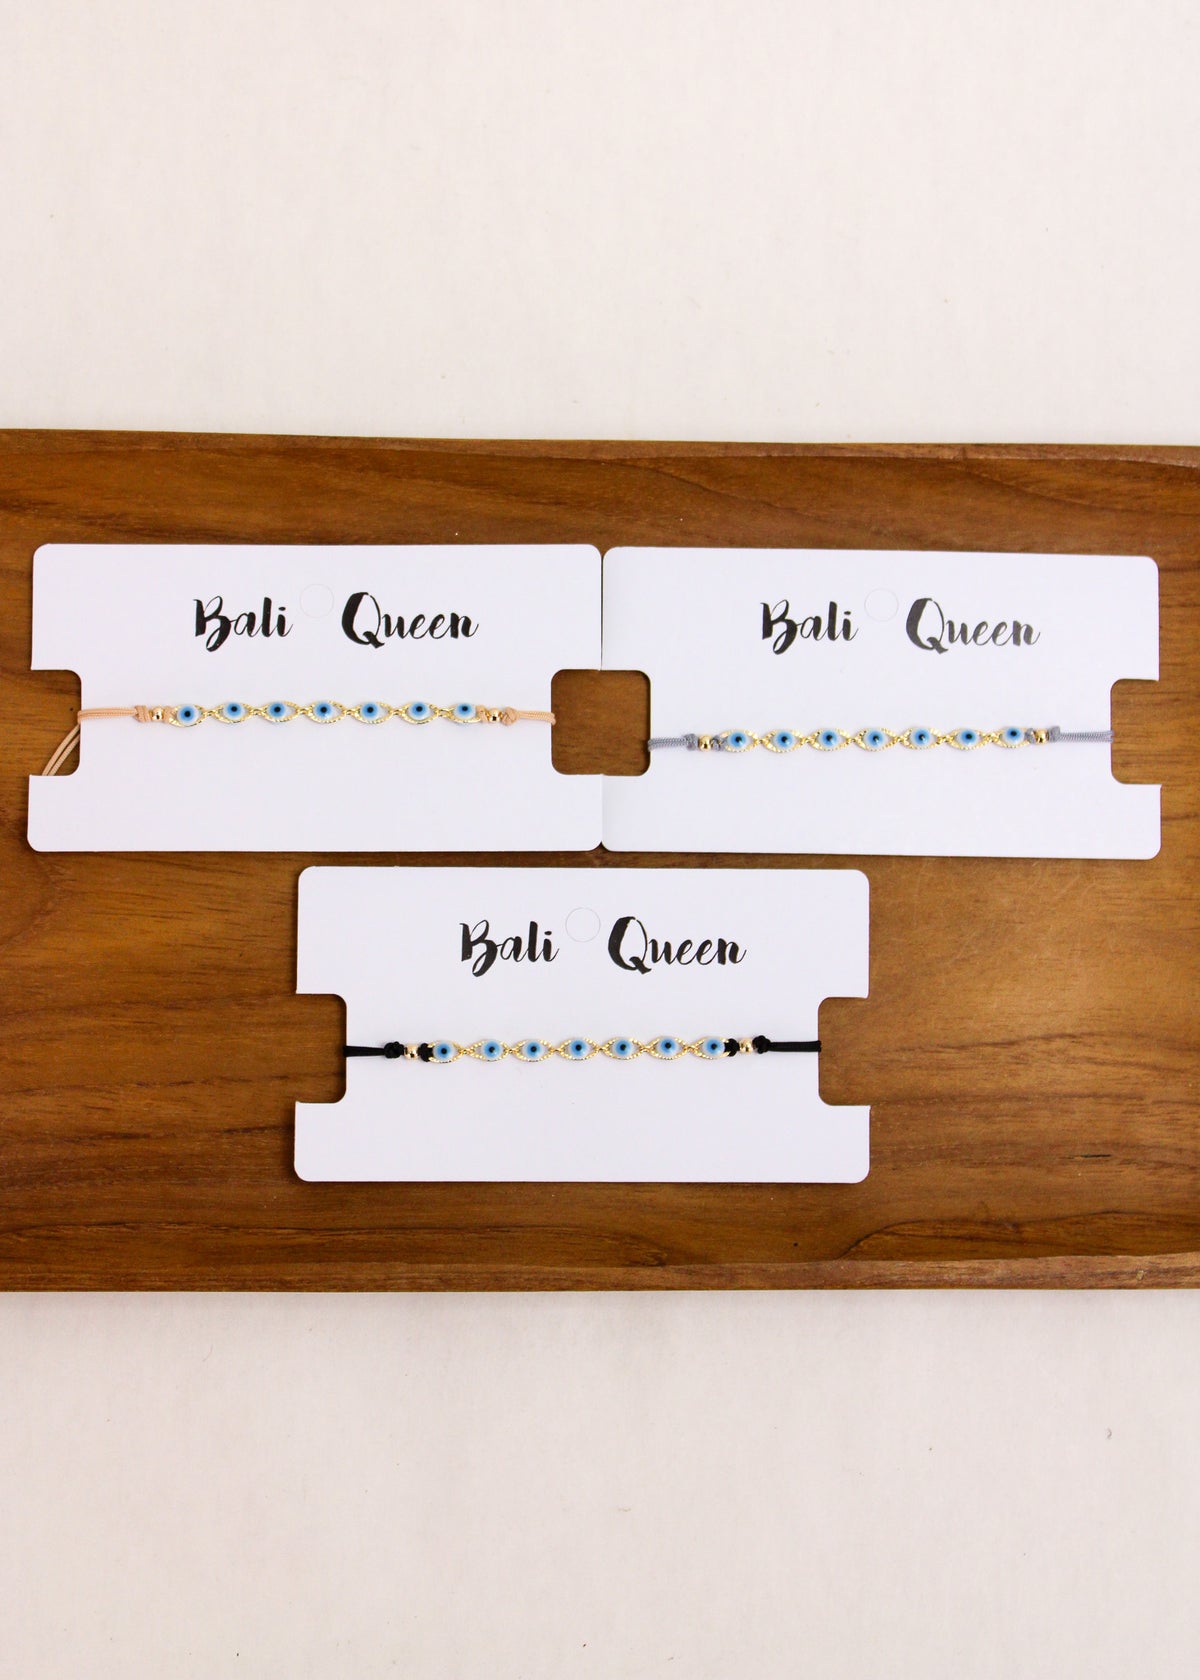 Bali Queen
Bali Queen
Bali Queen